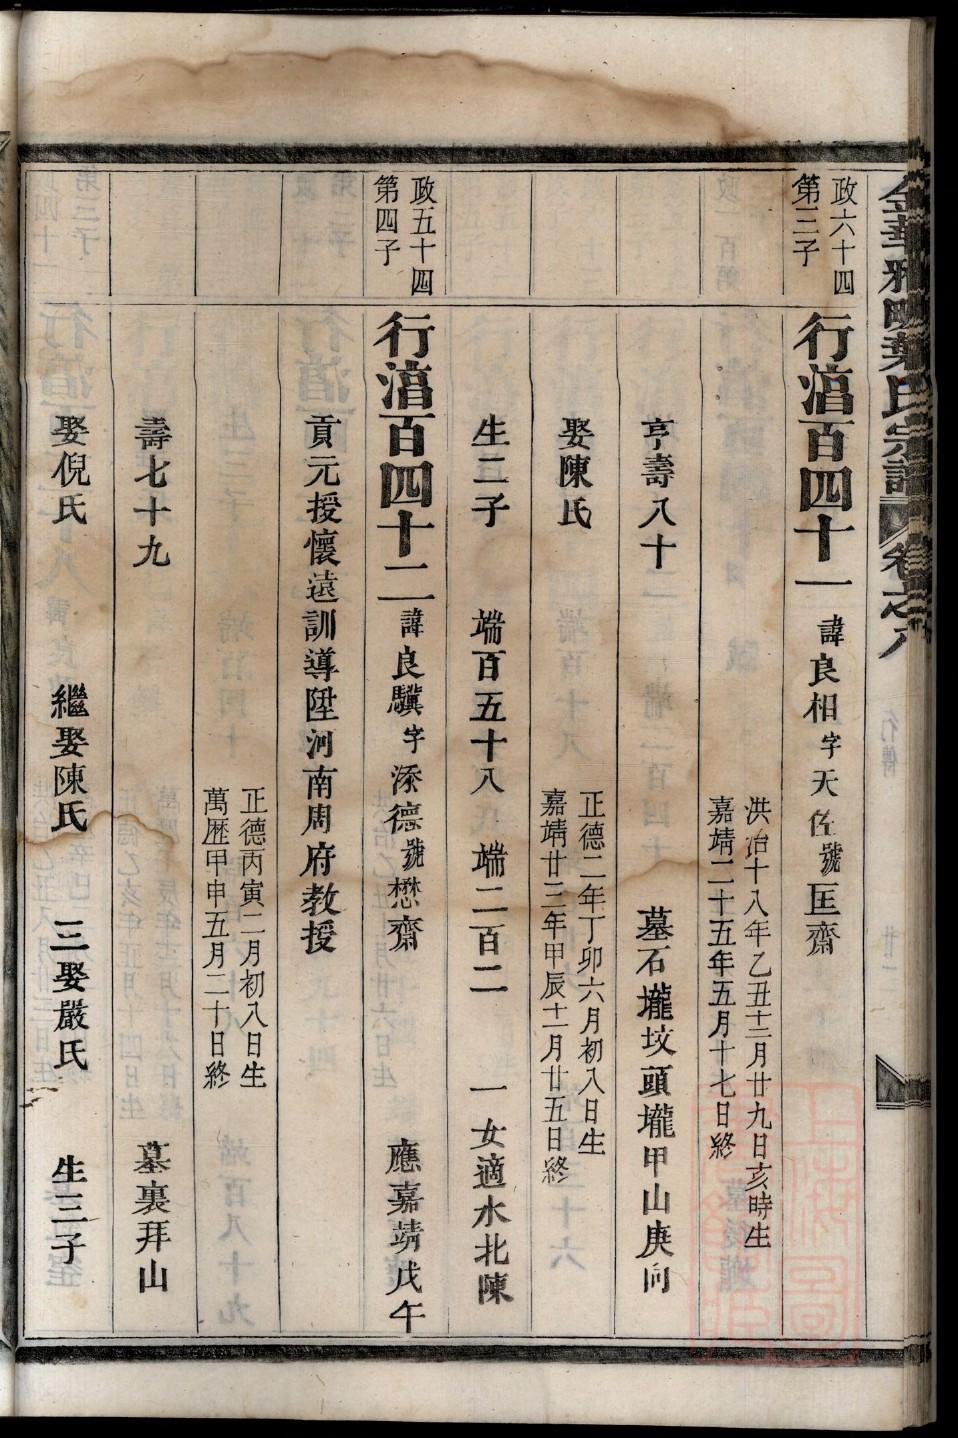 金華雅畈葉氏宗譜 卷之八
行傳
廿二
政六十四
第三子
行湻百四十一 諱良相字天佐號匡齋
洪治十八年乙丑十二月廿九日亥時生
嘉靖二十五年五月十七日終
亨壽八十 墓石壠坟頭壠甲山庚向
娶陳氏
正德二年丁卯六月初八日生
嘉靖廿三年甲辰十一月廿五日終
生二子 端百五十八 端二百二 一女適水北陳
政五十四
第四子
行湻百四十二 諱良驥字添德號懋齋 應嘉靖戊午
貢元授懷遠訓導陞河南周府教授
正德丙寅二月初八日生
萬歷甲申五月二十日終
壽七十九 墓裏拜山
娶倪氏 繼娶陳氏 三娶嚴氏 生三子